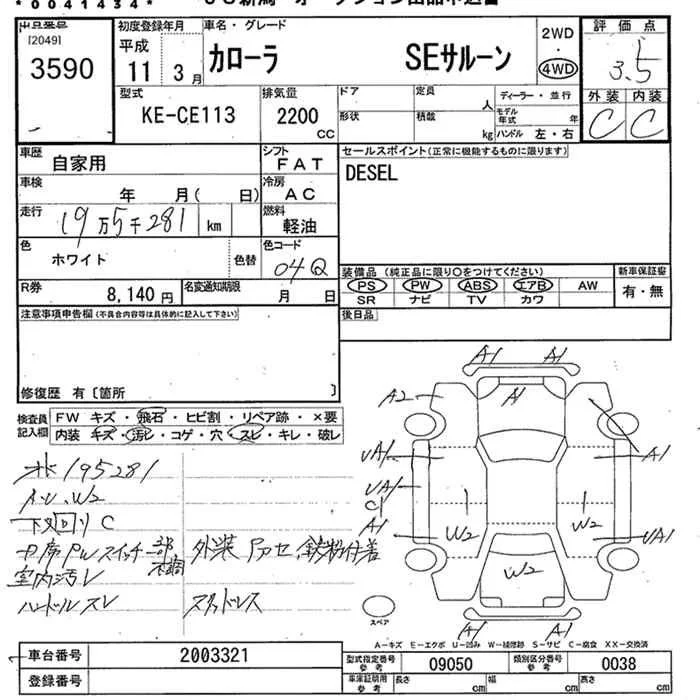 *0041434*
出品番号 初度登録年月 車名・グレード 2WD 評価点
[2049] 平成
3590 11 3月 カローラ SEサルーン ・ 4WD 3.5
型式 排気量 ドア 定員 ディーラー・並行 外装 内装
KE-CE113 2200 CC 形状 積載 人 モデル年式 年 C C
kg ハンドル 左・右
車歴 自家用 シフト FAT セールスポイント(正常に機能するものに限ります)
車検 年 月( 日) 冷房 AC DESEL
走行 19万5千281 km 燃料 軽油
色 ホワイト 色替 色コード 04Q
装備品(純正品に限り○をつけてください) 新車保証書
R券 8,140円 名変通知期限 月 日 PS PW ABS エアB AW 有・無
SR ナビ TV カワ
注意事項申告欄(不具合内容等は具体的に記入して下さい) 後日品
修復歴 有〔箇所 〕
検査員記入欄 FW キズ・飛石・ヒビ割・リペア跡・×要
内装 キズ・汚レ・コゲ・穴・スレ・キレ・破レ
195281
W2
下回り C
PWスイッチ一部 外装
室内汚レ
ハンドルスレ
A1 A1
A2 A1
UA1 A1
UA1
C1
A1 W2 W2 UA1
W2
A1 A1
スペア
A-キズ E-エクボ U-凹み W-補修跡 S-サビ C-腐食 XX-交換済
車台番号 2003321 型式指定番号参考 09050 類別区分番号参考 0038
登録番号 車庫証明用参考 長さ cm 幅 cm 高さ cm